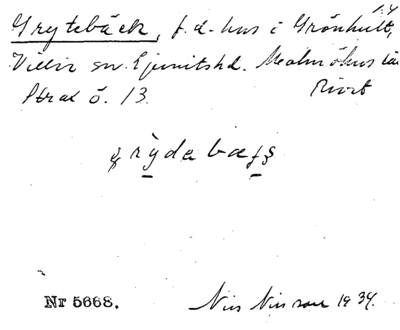 1.4
Grytebäck, f.d. hus i Grönhult,
Villie sn. Ljunits hd. Malmöhus län
Strax ö. 13. Rivet
Nr 5668. Nils Nilsson 1934.